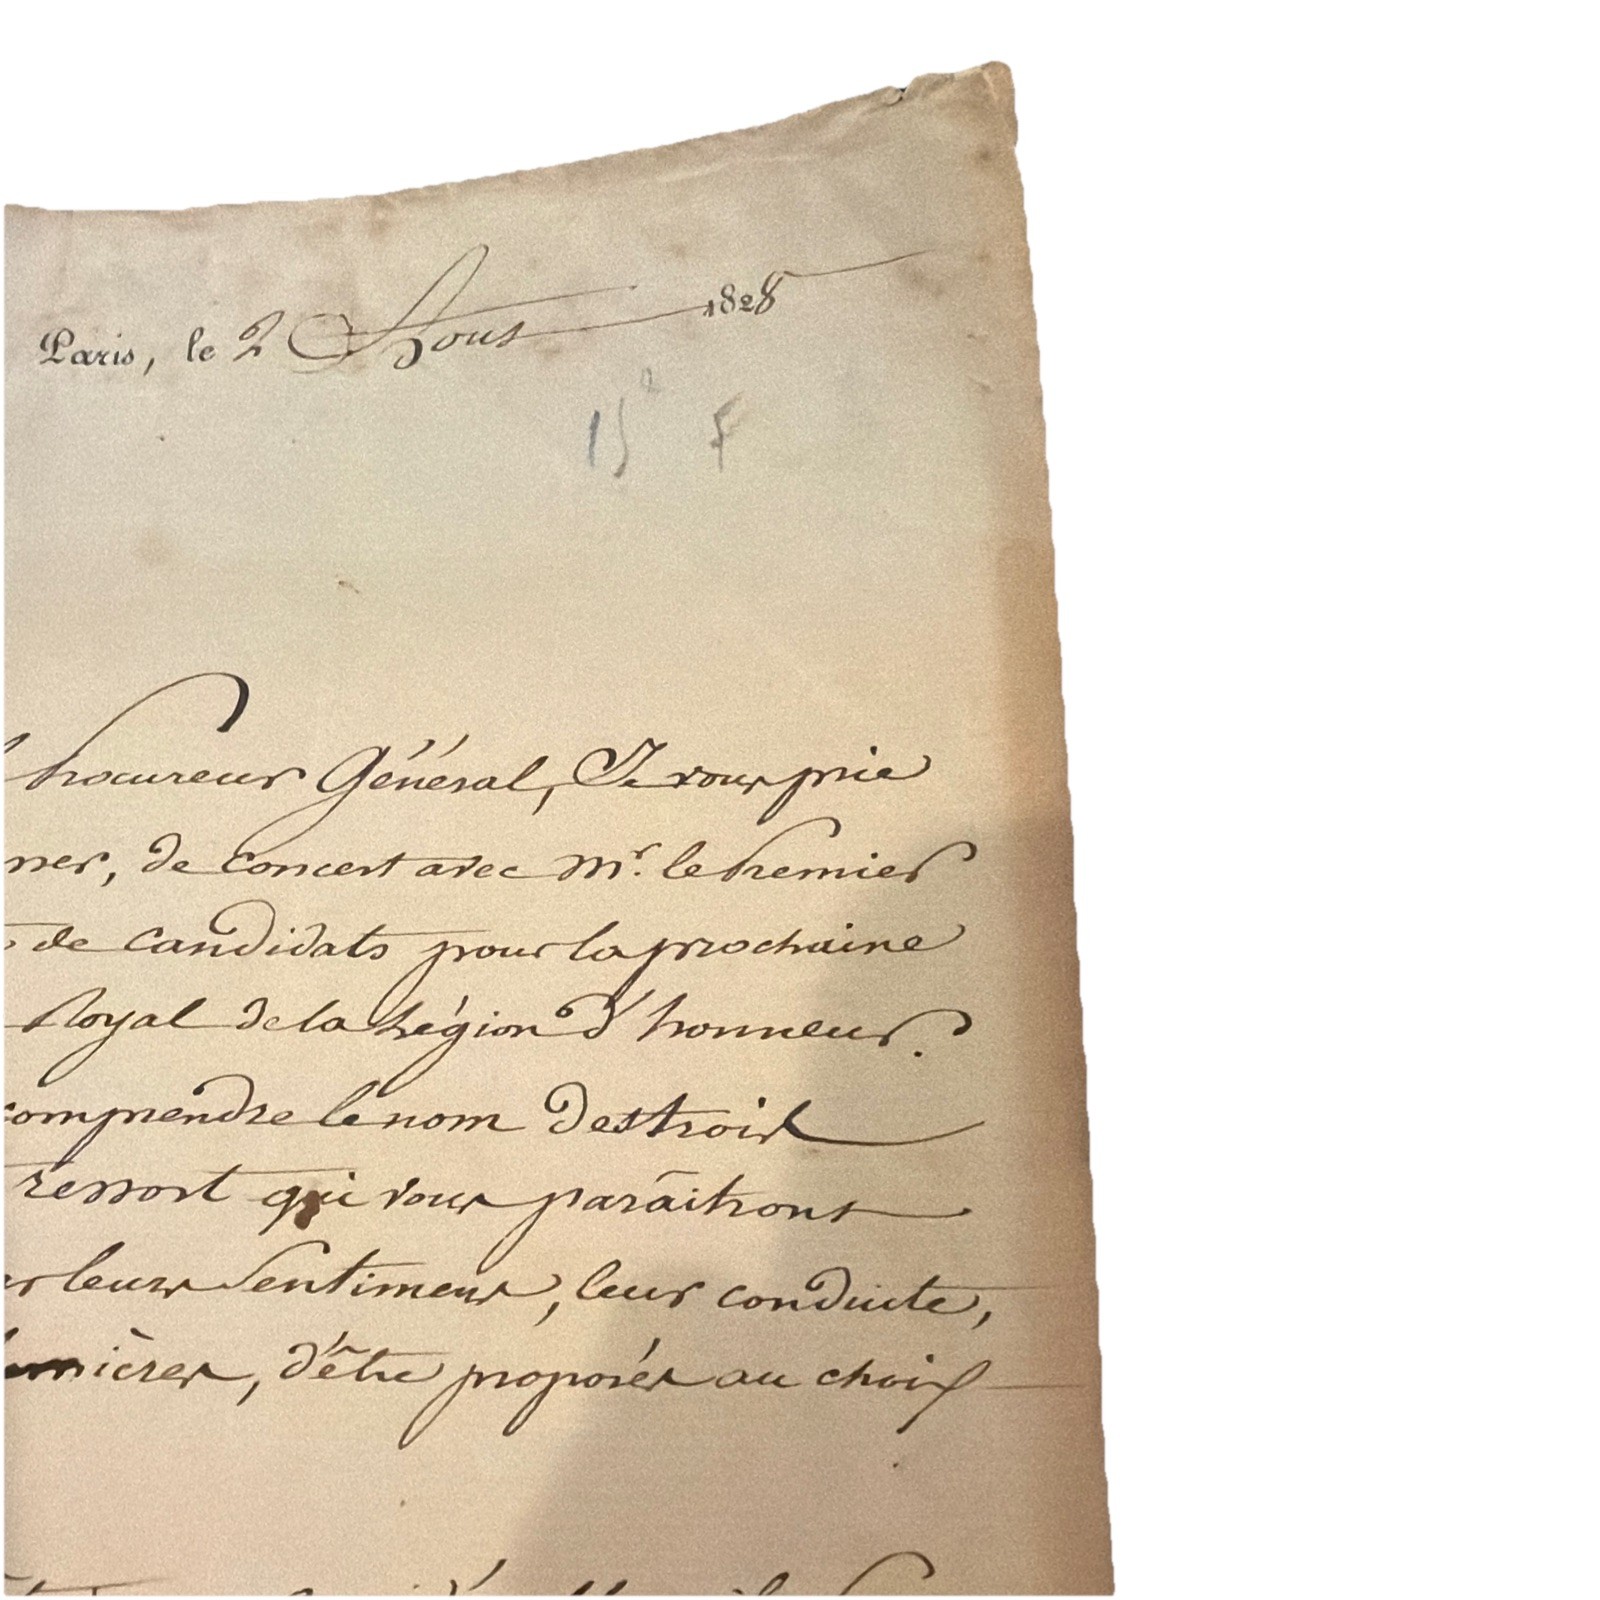 Paris, le 2 Aout 1828
15
Procureur Général, Je vous prie
ner, de concert avec Mr. le Premier
de candidats pour la prochaine
Royal de la Légion d'honneur.
comprendre le nom des trois
ressort qui vous paraîtront
leurs sentimens, leur conduite,
lumières, d'être proposés au choix